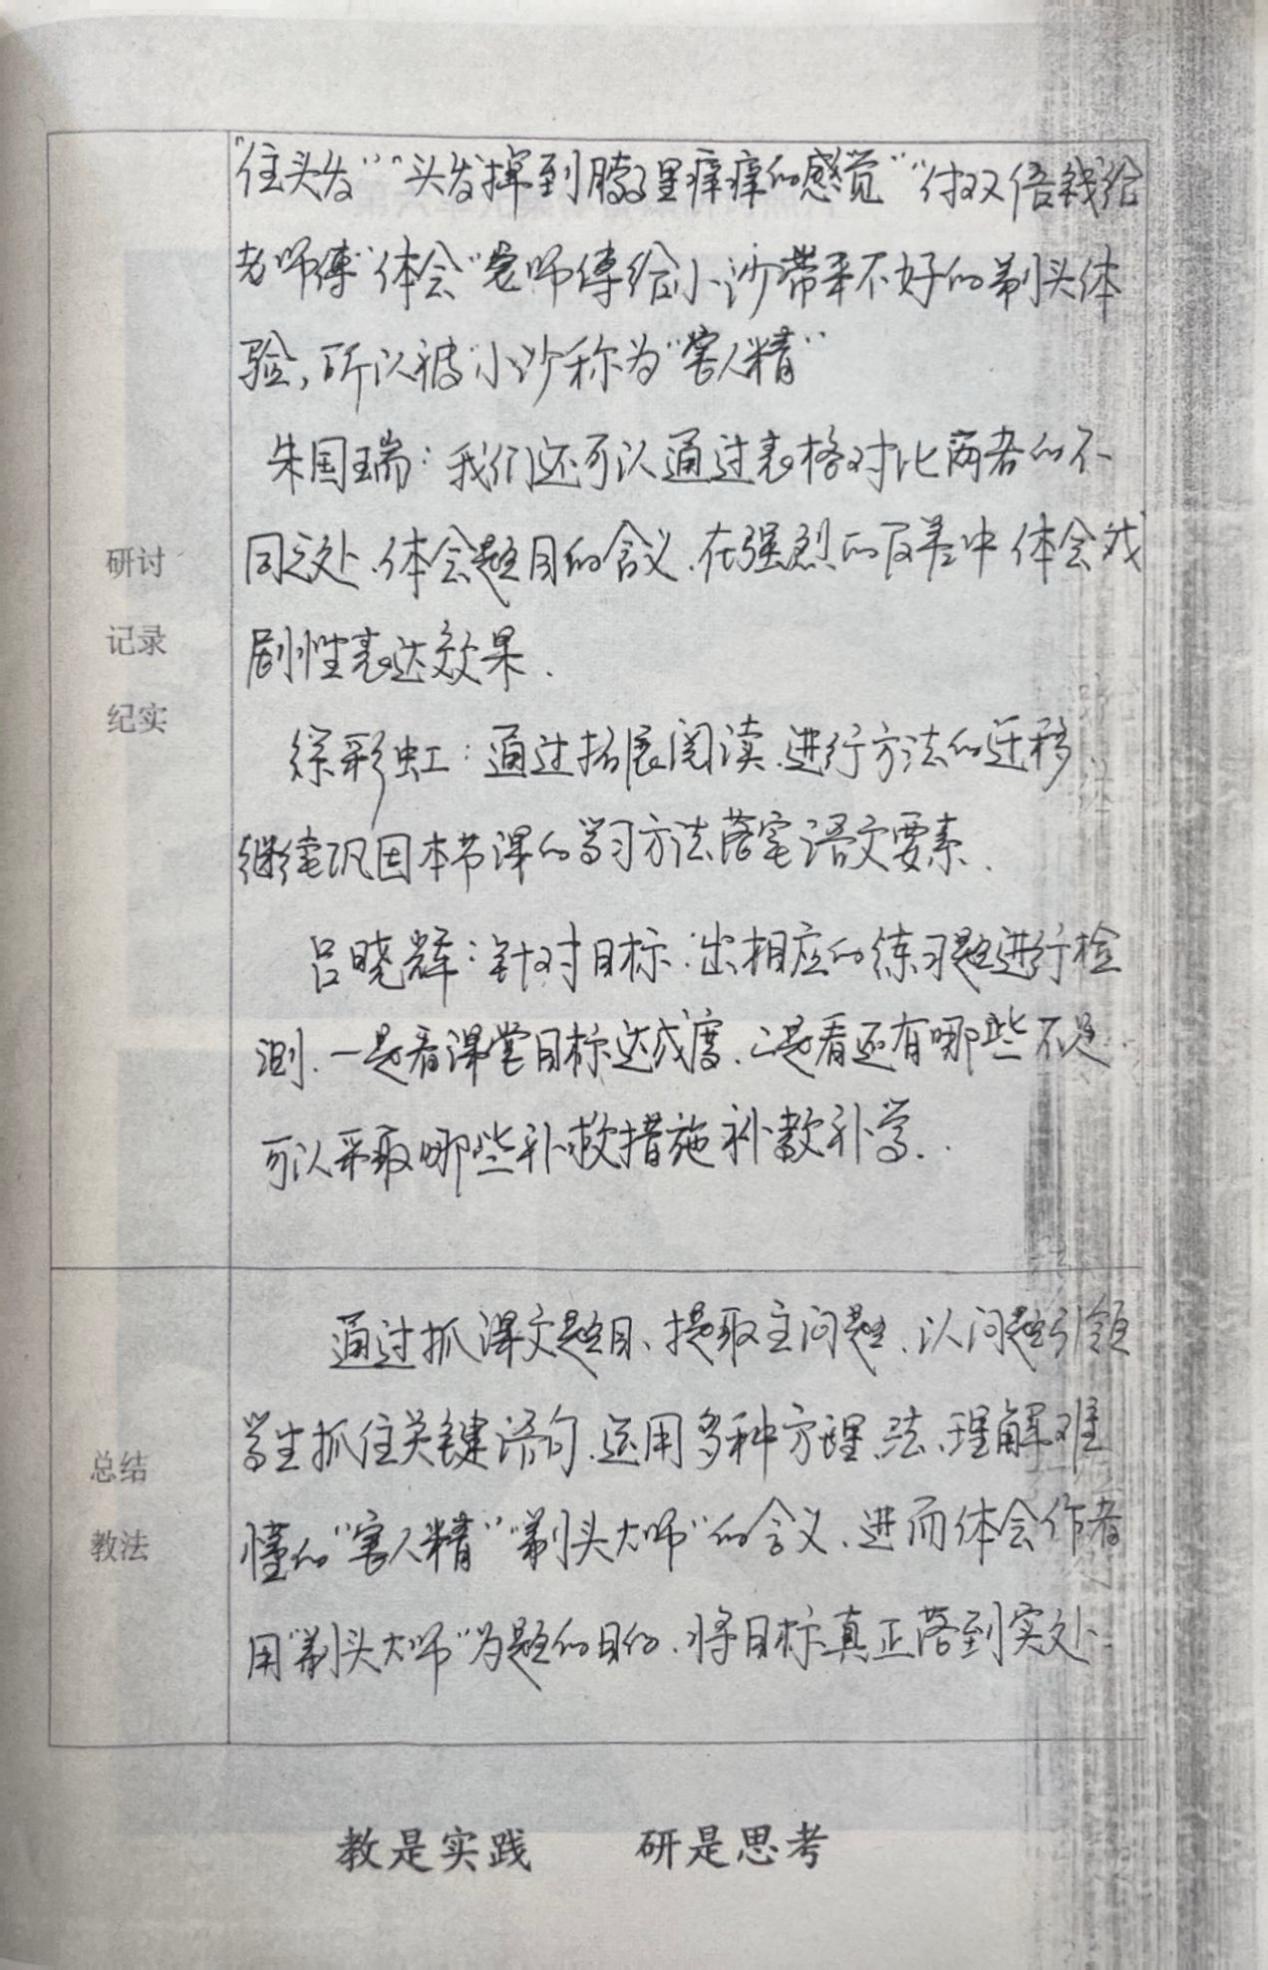 "住头发""头发掉到脖子里痒痒的感觉""付双倍钱给
老师傅"体会"老师傅给小沙带来不好的剃头体
验,所以被小沙称为"害人精"
朱国瑞:我们还可以通过表格对比两者的不
同之处、体会题目的含义、在强烈的反差中体会戏
剧性表达效果.
研讨
记录
纪实
徐彩虹:通过拓展阅读、进行方法的迁移
继续巩固本节课的学习方法落实语文要素.
吕晓辉:针对目标、出相应的练习题进行检
测、一是看课堂目标达成度、二是看还有哪些不足
可以采取哪些补救措施补教补学.
通过抓课文题目、提取主问题、以问题引领
学生抓住关键语句、运用多种方理法、理解难
懂的"害人精""剃头大师"的含义、进而体会作者
用"剃头大师"为题的目的、将目标真正落到实处
总结
教法
教是实践 研是思考